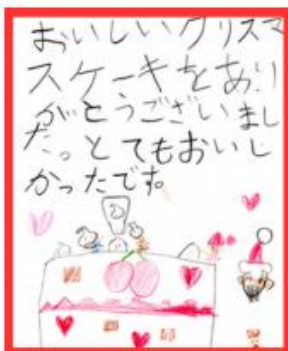 おいしいクリスマ
スケーキをあり
がとうございまし
た。とてもおいし
かったです。